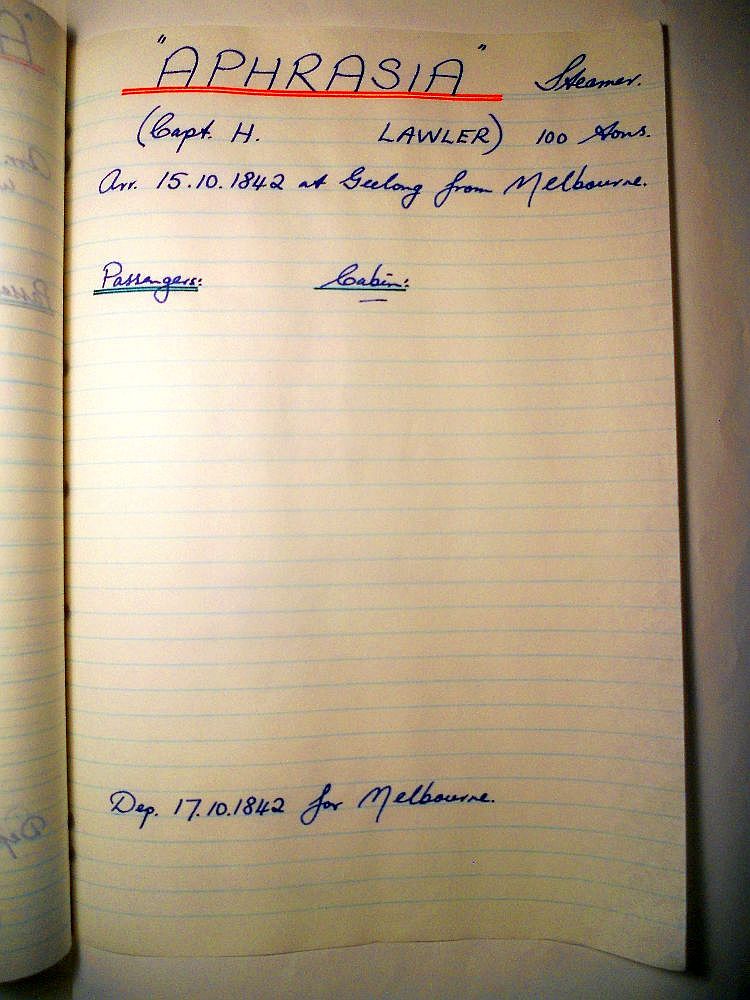 "APHRASIA" Steamer.
(Capt. H. LAWLER) 100 Tons.
Arr. 15.10.1842 at Geelong from Melbourne.
Passengers: Cabin:
Dep. 17.10.1842 for Melbourne.